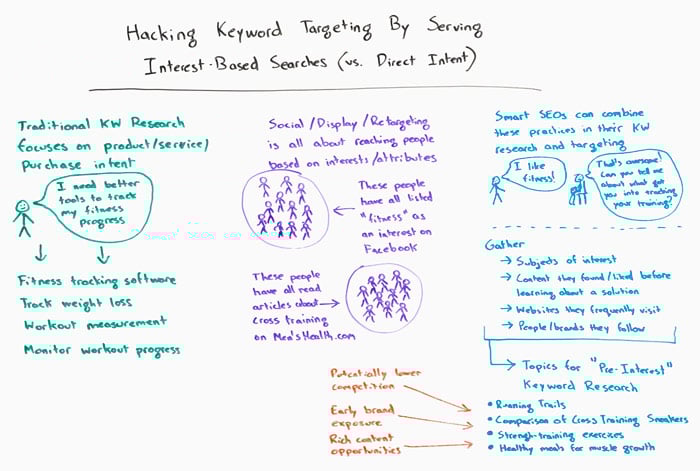 Hacking Keyword Targeting By Serving
Interest-Based Searches (vs. Direct Intent)
Traditional KW Research
focuses on product/service/
Purchase intent
I need better
tools to track
my fitness
progress
Fitness tracking software
Track weight loss
Workout measurement
Monitor workout progress
Social/Display/Retargeting
is all about reaching people
based on interests/attributes
These people
have all listed
"fitness" as
an interest on
Facebook
These people
have all read
articles about
cross training
on Men'sHealth.com
Smart SEOs can combine
these practices in their KW
research and targeting
I like
fitness!
That's awesome!
Can you tell me
about what got
you into tracking
your training?
Gather
→ Subjects of interest
→ Content they found/liked before
learning about a solution
→ Websites they frequently visit
→ People/brands they follow
→ Topics for "Pre-Interest"
Keyword Research
Potentially lower
competition
Early brand
exposure
Rich content
opportunities
• Running Trails
• Comparison of Cross Training Sneakers
• Strength-training exercises
• Healthy meals for muscle growth